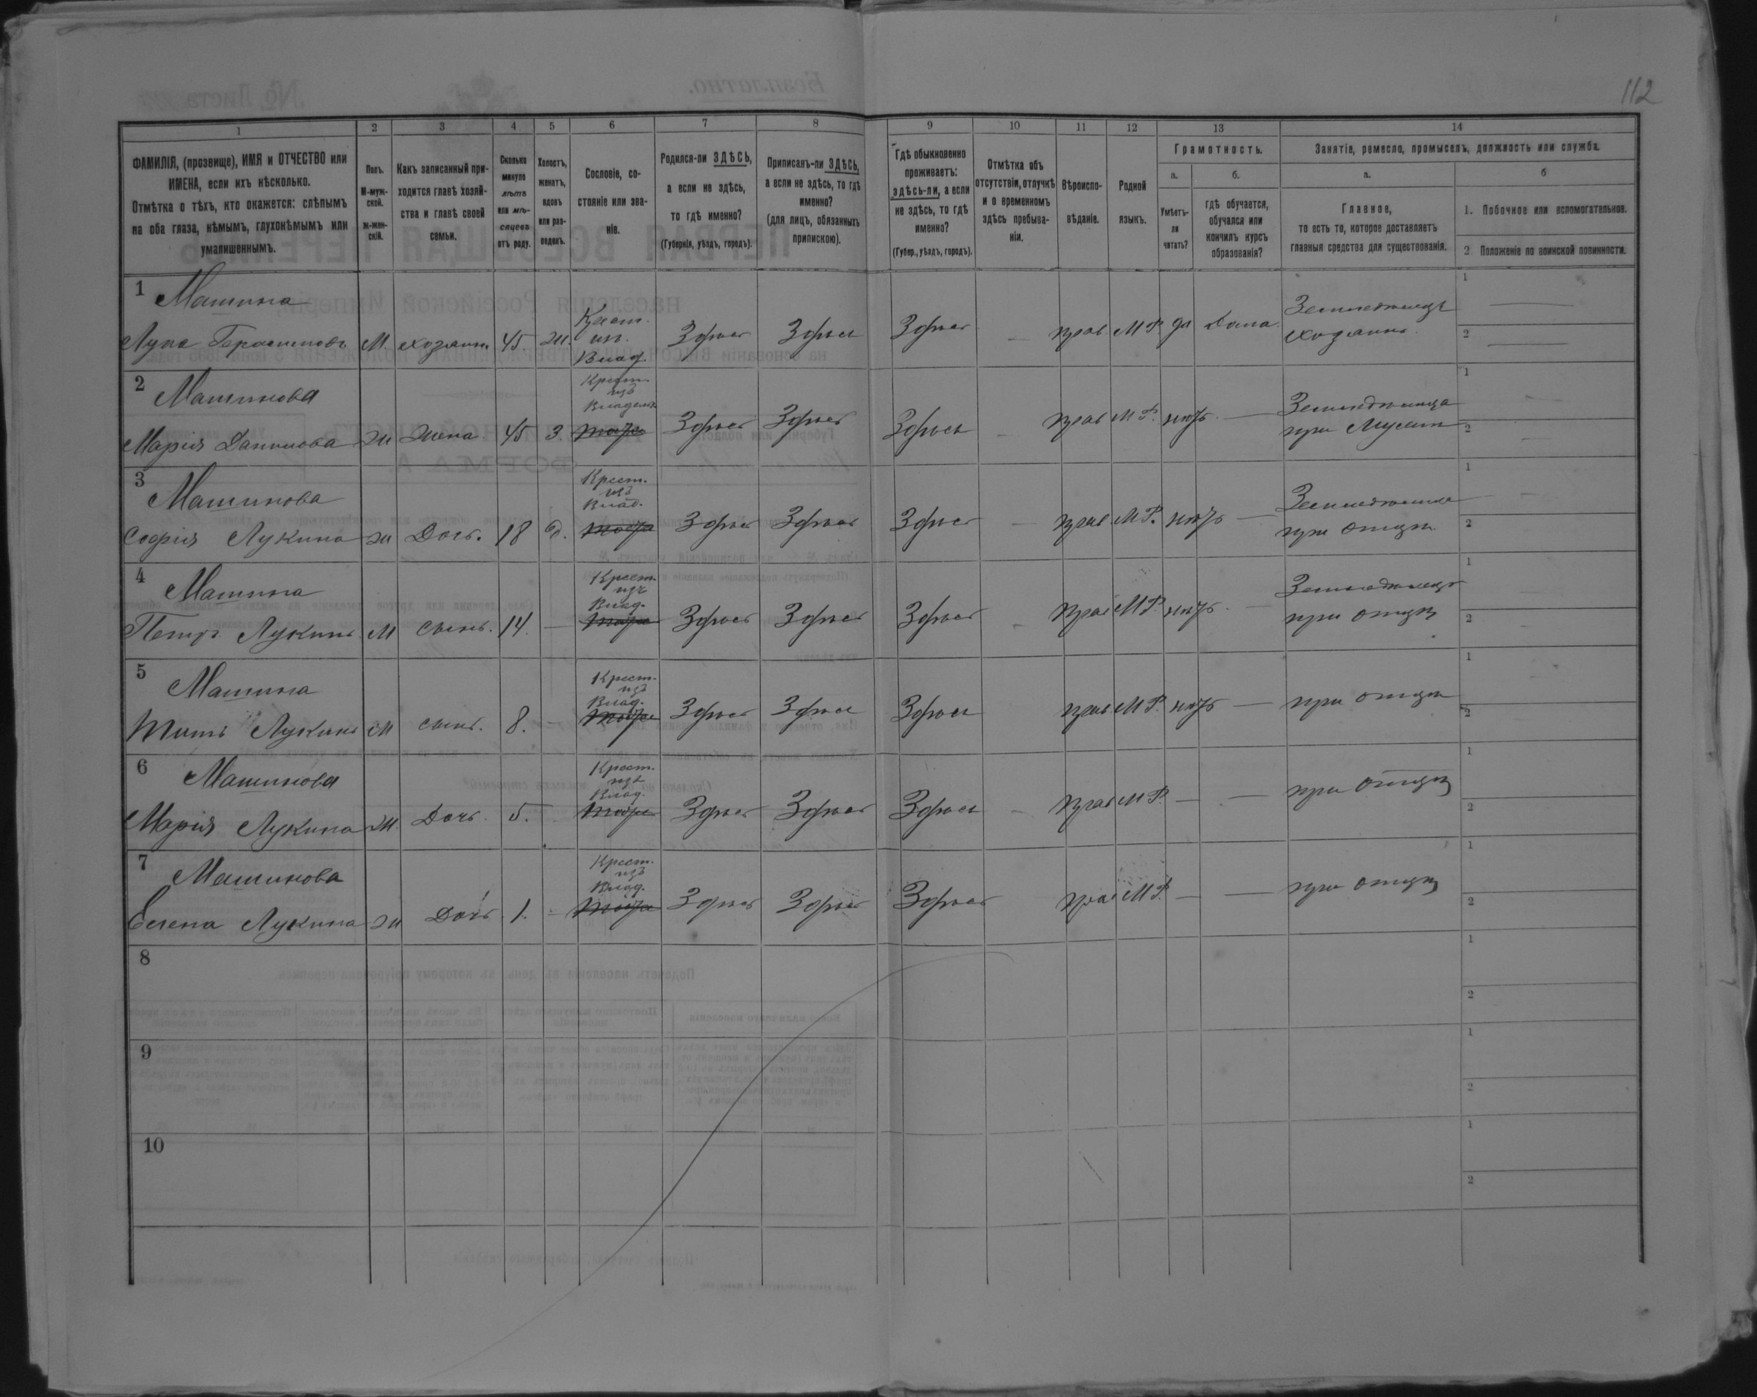 112
1 2 3 4 5 6 7 8 9 10 11 12 13 14
ФАМИЛІЯ, (прозвище), ИМЯ и ОТЧЕСТВО или
ИМЕНА, если ихъ нѣсколько.
Отмѣтка о тѣхъ, кто окажется: слѣпымъ
на оба глаза, нѣмымъ, глухонѣмымъ или
умалишеннымъ.
Полъ.
М-муж-
ской.
Ж-жен-
скій.
Какъ записанный при-
ходится главѣ хозяй-
ства и главѣ своей
семьи.
Сколько
минуло
лѣтъ
или мѣ-
сяцевъ
отъ роду.
Холостъ,
женатъ,
вдовъ
или раз-
веденъ.
Сословіе, со-
стояніе или зва-
ніе.
Родился-ли ЗДѢСЬ,
а если не здѣсь,
то гдѣ именно?
(Губернія, уѣздъ, городъ).
Приписанъ-ли ЗДѢСЬ,
а если не здѣсь, то гдѣ
именно?
(для лицъ, обязанныхъ
припискою).
Гдѣ обыкновенно
проживаетъ:
здѣсь-ли, а если
не здѣсь, то гдѣ
именно?
(Губер., уѣздъ, городъ).
Отмѣтка объ
отсутствіи, отлучкѣ
и о временномъ
здѣсь пребыва-
ніи.
Вѣроиспо-
вѣданіе.
Родной
языкъ.
Грамотность.
а.
Умѣетъ-
ли
читать?
б.
гдѣ обучается,
обучался или
кончилъ курсъ
образованія?
Занятіе, ремесло, промыселъ, должность или служба.
а.
Главное,
то есть то, которое доставляетъ
главныя средства для существованія.
б
1. Побочное или вспомогательное.
2. Положеніе по воинской повинности.
1 Машина
Лупа Герасимовъ М хозяинъ 45 ж. Крест. из Влад. Здѣсь Здѣсь Здѣсь — прав М.Р. да Дома Земледѣлецъ хозяинъ
2 Машинова
Марія Данилова ж жена 45 з. Крест. изъ Владѣльч. Здѣсь Здѣсь Здѣсь — прав М.Р. нѣтъ — Земледѣлица при
3 Машинова
Софія Лукина ж Дочь. 18 д. Крест. изъ Влад. Здѣсь Здѣсь Здѣсь — прав М.Р. нѣтъ — при отцѣ
4 Машина
Петръ Лукинъ М сынъ. 14. — Крест. изъ Влад. Здѣсь Здѣсь Здѣсь — прав М.Р. нѣтъ — Земледѣлецъ при отцѣ
5 Машина
Титъ Лукинъ М сынъ. 8. — Крест. изъ Влад. Здѣсь Здѣсь Здѣсь прав М.Р. нѣтъ — при отцѣ
6 Машинова
Марія Лукина ж. Дочь. 5. — Крест. изъ Влад. Здѣсь Здѣсь Здѣсь — прав М.Р. — — при отцѣ
7 Машинова
Елена Лукина ж Дочь 1. — Крест. изъ Влад. Здѣсь Здѣсь Здѣсь прав М.Р. — — при отцѣ
8
9
10